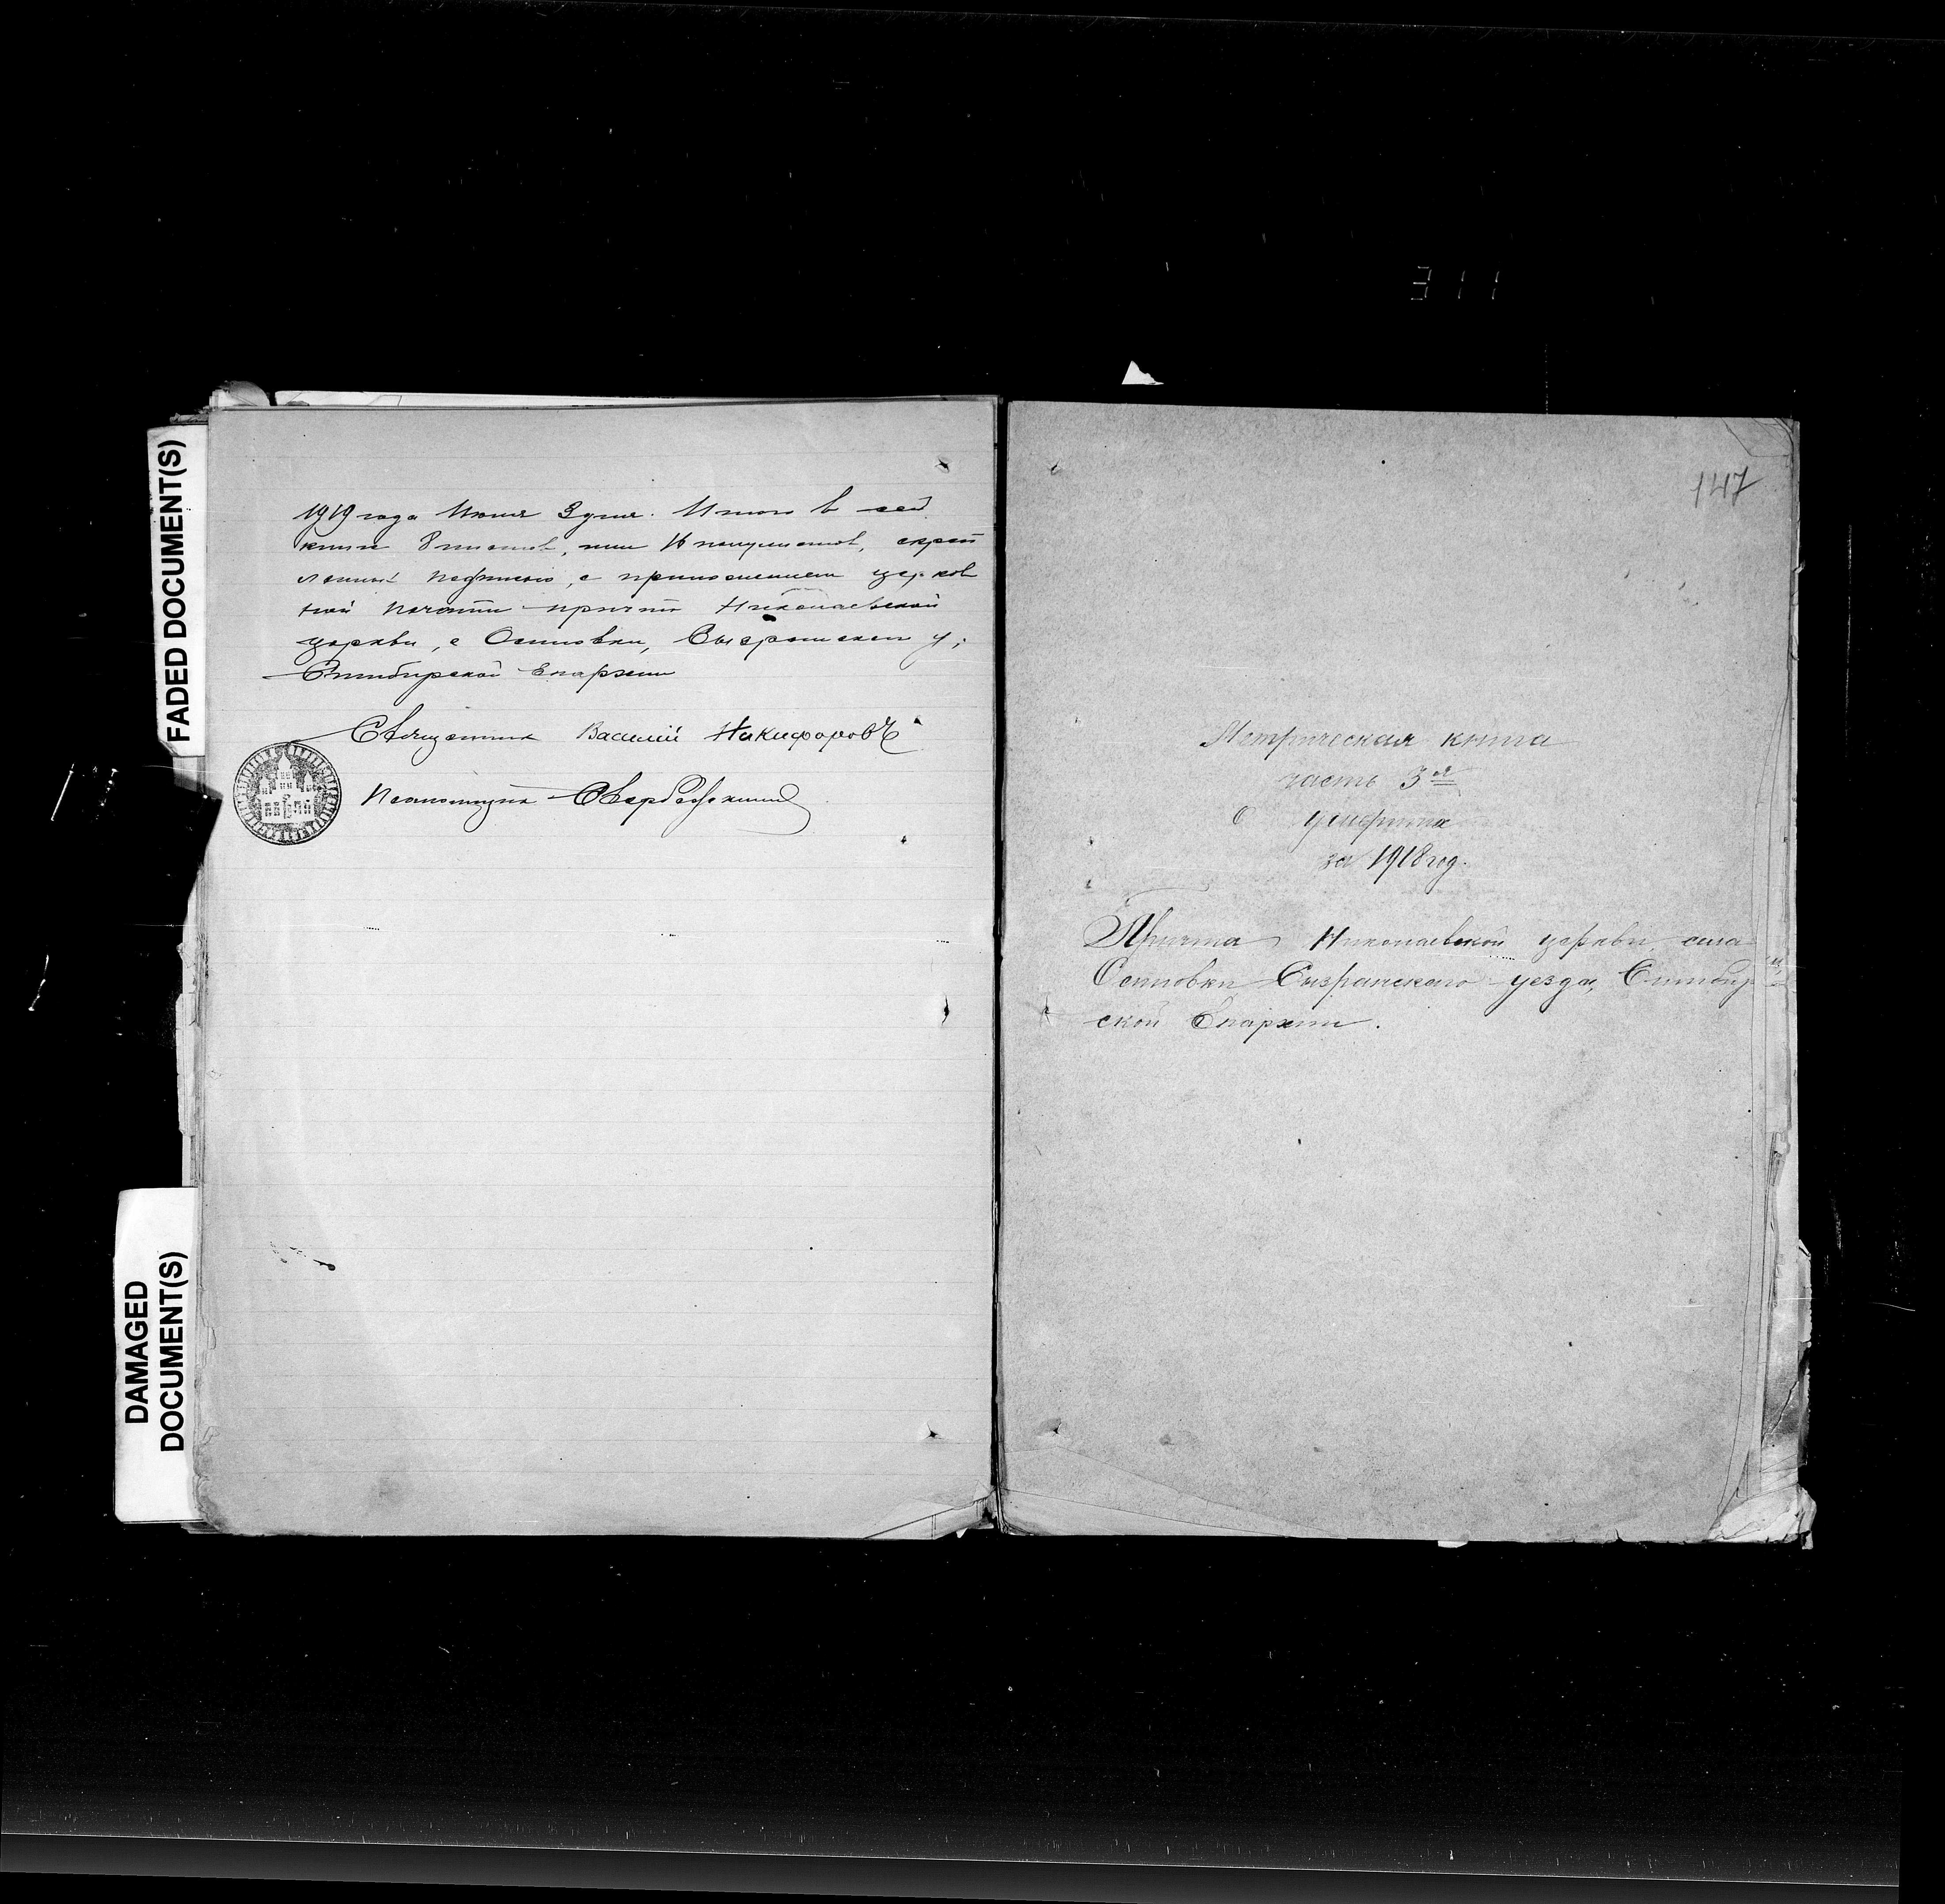 311
FADED DOCUMENT(S)
1919 года Июня 3 дня. Итого в сей
книге 8 листов, или 16 полулистов, скреп
ленных подписью, с приложением церков
ной печати причта Николаевской
церкви, с Осиновки, Сызранском у;
Симбирской Епархии
Священник Василий Никифоровъ
Псаломщик
DAMAGED
DOCUMENT(S)
147
Метрическая книга
часть 3ая
О умерших
за 1918 год.
Причта Николаевской церкви села
Осиновки Сызранского уезда, Симбир
ской Епархии.